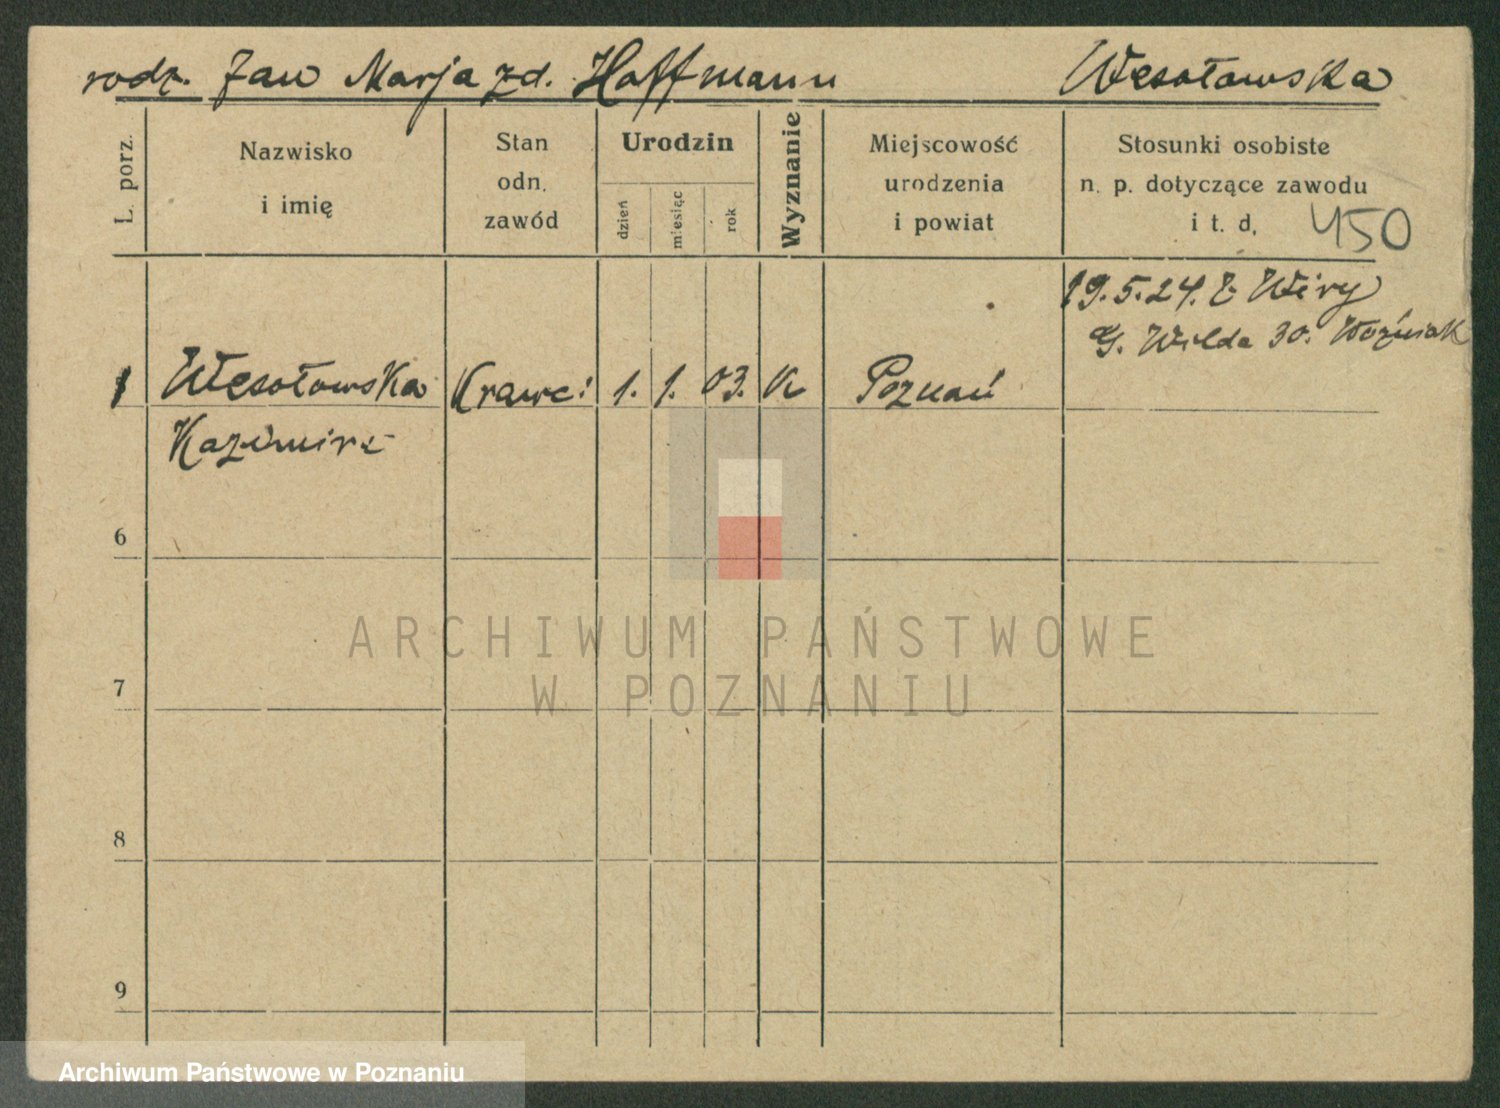 rodz. Jan Marja zd. Hoffmann Wesołowska
L. porz.
Nazwisko
i imię
Stan
odn.
zawód
Urodzin
dzień
miesiąc
rok
Wyznanie
Miejscowość
urodzenia
i powiat
Stosunki osobiste
n. p. dotyczące zawodu
i t. d.
450
19.5.24. z Wiry
G. Wilda 30. Woźniak
1 Wesołowska Krawc: 1. 1. 03. K Poznań
Kazimira
6
7
8
9
ARCHIWUM PAŃSTWOWE
W POZNANIU
Archiwum Państwowe w Poznaniu